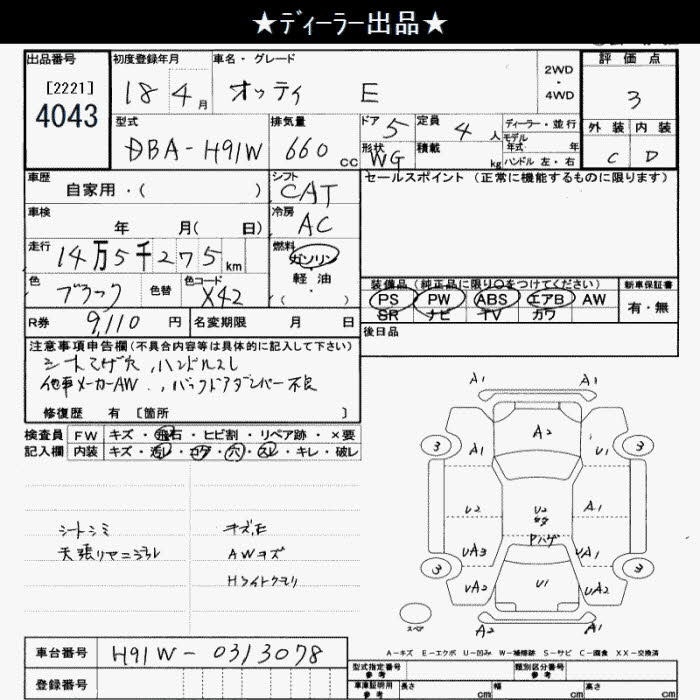 ★ディーラー出品★
出品番号 初度登録年月 車名・グレード 2WD・4WD 評価点
[2221] 4043 18 4月 オッティ E 3
型式 排気量 ドア 5 定員 4人 ディーラー・並行 外装 内装
DBA-H91W 660cc 形状 WG 積載 kg モデル年式 年 ハンドル 左・右 C D
車歴 自家用・( ) シフト CAT セールスポイント (正常に機能するものに限ります)
車検 年 月( 日) 冷房 AC
走行 14万5千275km 燃料 ガソリン 軽油・( )
色 ブラック 色替 色コード X42 装備品(純正品に限り○をつけてください) 新車保証書
PS PW ABS エアB AW 有・無
SR ナビ TV カワ
R券 9,110円 名変期限 月 日 後日品
注意事項申告欄(不具合内容等は具体的に記入して下さい)
シートコゲ穴、ハンドルスレ
他車メーカーAW、バックドアダンパー不良
修復歴 有 [箇所 ]
検査員 FW キズ・飛石・ヒビ割・リペア跡・×要
記入欄 内装 キズ・汚レ・コゲ・穴・スレ・キレ・破レ
シートシミ キズ、E
天張りヤニヨゴレ AWキズ
Hライトクモリ
A1 A1
A2
3 3
A1 U1
U2 U2 A1
ヤハゲ
UA3 UA1
3 3
UA2 U1 UA2
スペア A2 A2
A-キズ E-エクボ U-凹み W-補修跡 S-サビ C-腐食 XX-交換済
車台番号 H91W-0313078
型式指定番号 参考 類別区分番号 参考
登録番号 車庫証明用 参考 長さ cm 幅 cm 高さ cm